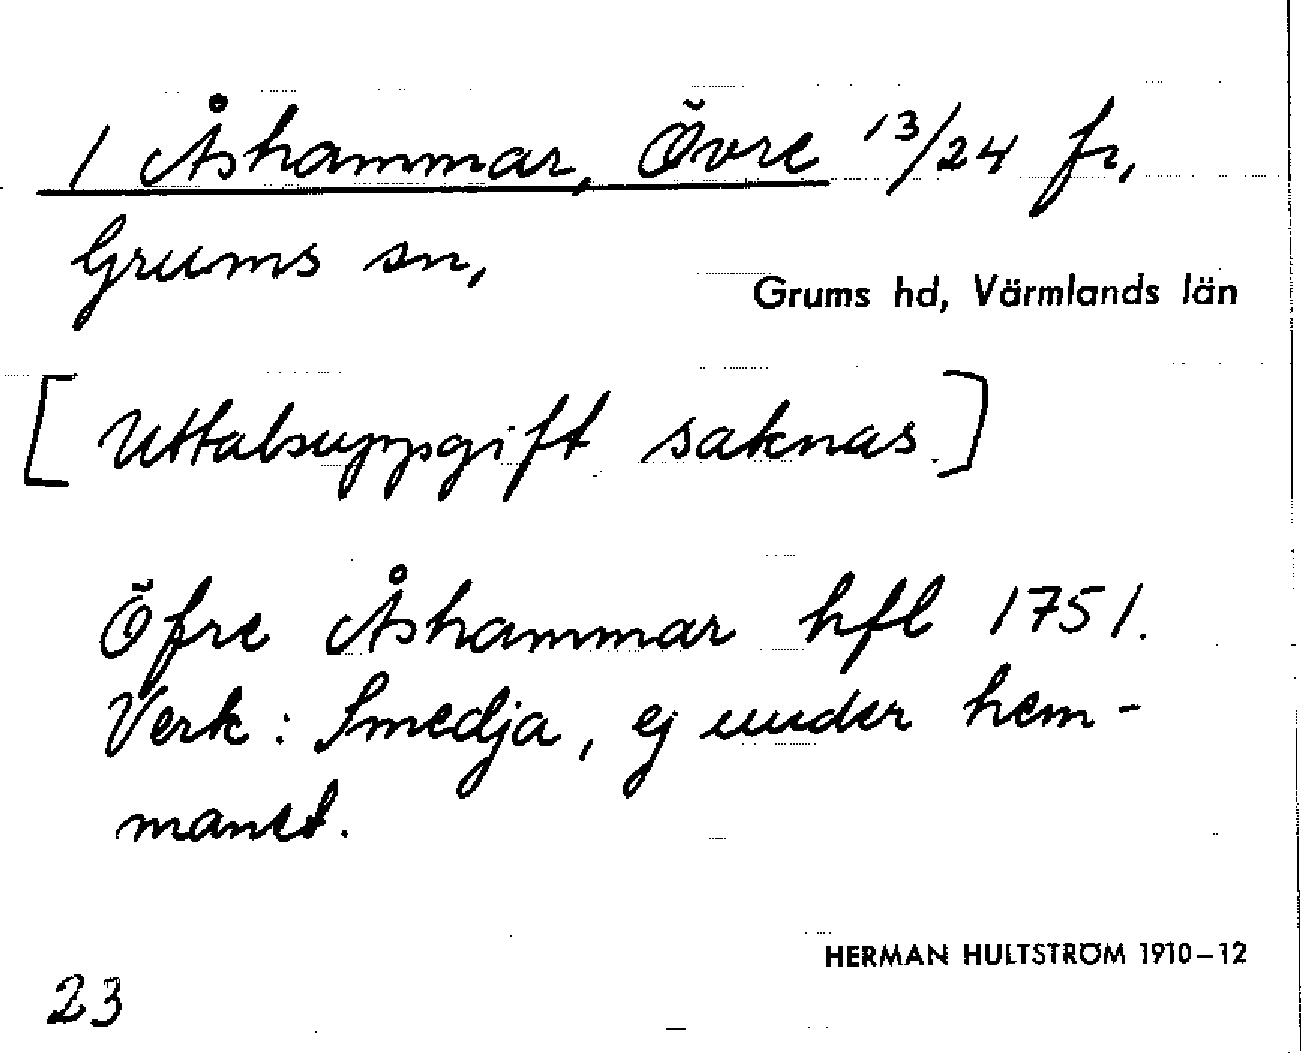 1 Åshammar, Övre 13/24 fr,
Grums sn,
Grums hd, Värmlands län
[Uttalsuppgift saknas.]
Öfre Åshammar hfl 1751.
Verk: Smedja, ej under hem-
manet.
HERMAN HULTSTRÖM 1910–12
23